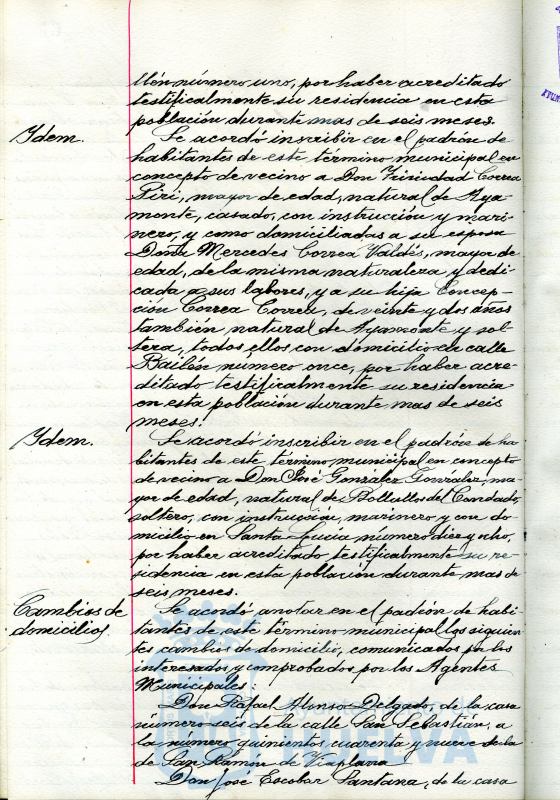 llén número uno, por haber acreditado
testificalmente su residencia en esta
población durante mas de seis meses.
Idem.
Se acordó inscribir en el padrón de
habitantes de este término municipal en
concepto de vecino a Don Trinidad Correa
Piri, mayor de edad, natural de Aya-
monte, casado, con instrucción y mari-
nero, y como domiciliadas a su esposa
Doña Mercedes Correa Valdés, mayor de
edad, de la misma naturaleza y dedi-
cada a sus labores, y a su hija Concep-
ción Correa Correa, de veinte y dos años
también natural de Ayamonte y sol-
tera, todos ellos con domicilio en calle
Bailén numero once, por haber acre-
ditado testificalmente su residencia
en esta población durante mas de seis
meses.
Idem.
Se acordó inscribir en el padrón de ha-
bitantes de este término municipal en concepto
de vecino a Don José González González, ma-
yor de edad, natural de Bollullos del Condado,
soltero, con instrucción, marinero y con do-
micilio en Santa Lucia número diez y ocho,
por haber acreditado testificalmente su re-
sidencia en esta población durante mas de
seis meses.
Cambios de
domicilios.
Se acordó anotar en el padrón de habi-
tantes de este término municipal los siguien-
tes cambios de domicilio, comunicados por los
interesados y comprobados por los Agentes
Municipales:
Don Rafael Alonso Delgado, de la casa
número seis de la calle San Sebastián, a
la número quinientos cuarenta y nueve de la
de San Ramón de Viaplana
Don José Escobar Santana, de la casa
HUELVA